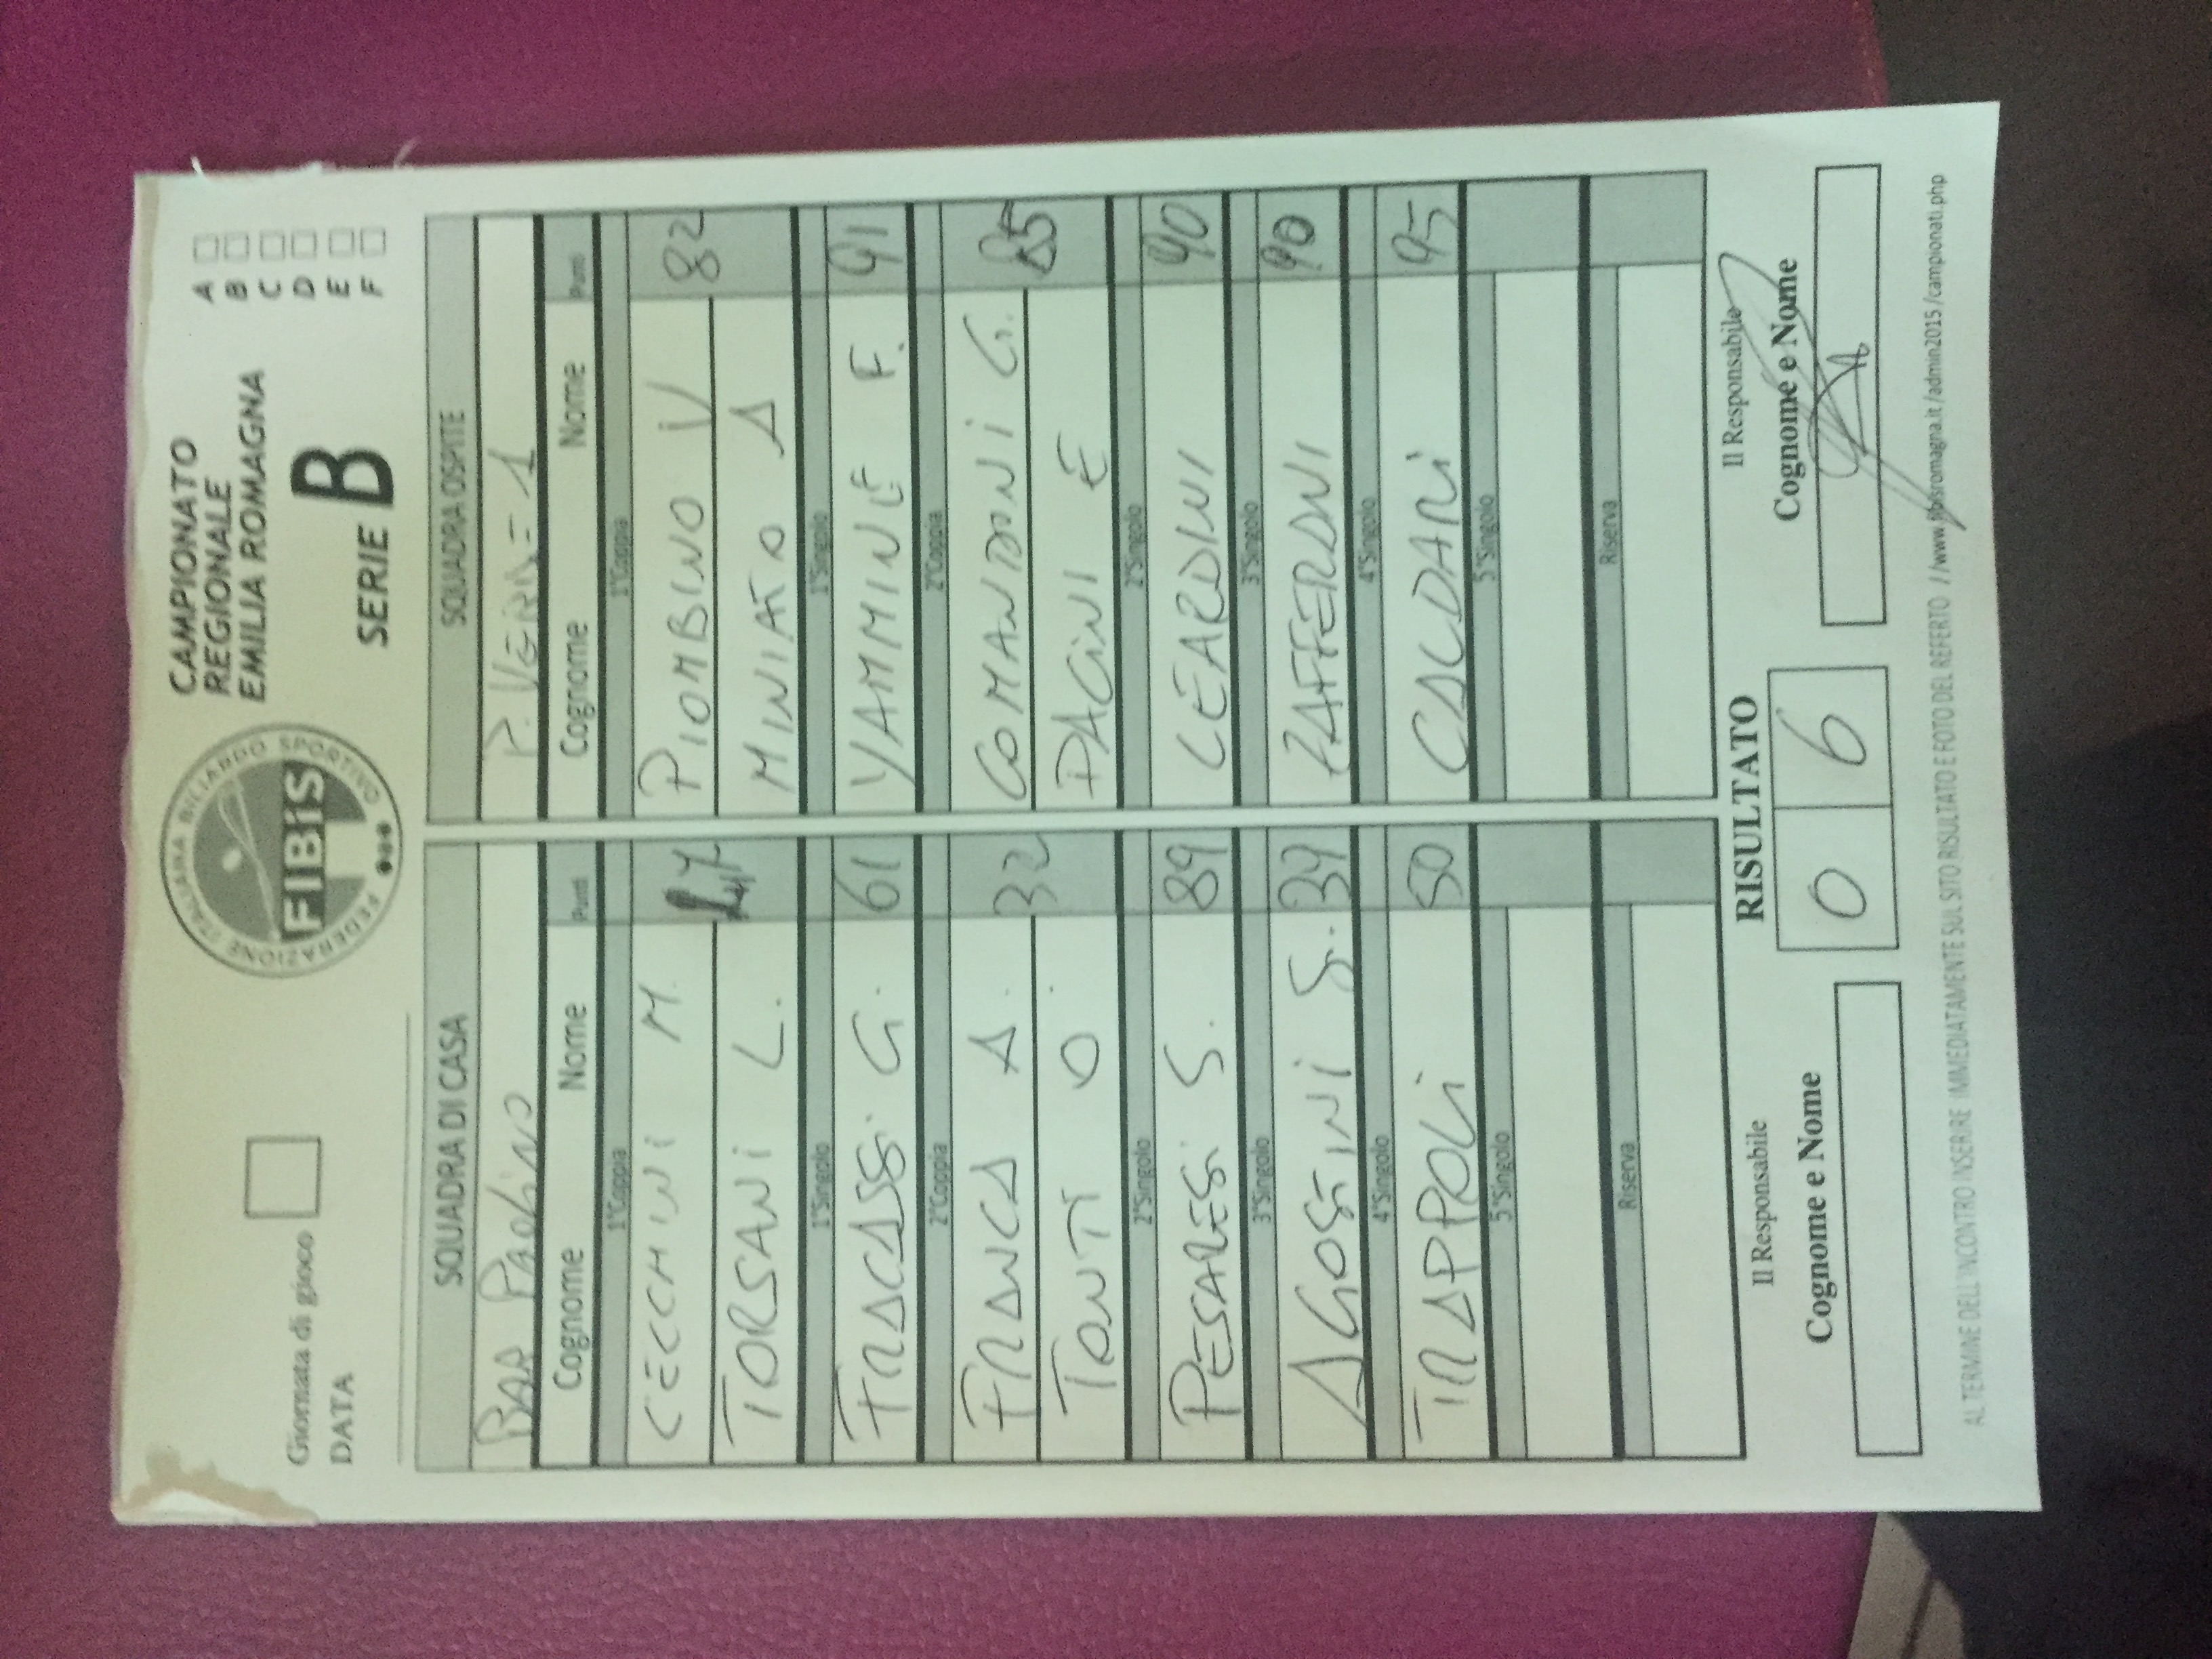 Giornata di gioco
DATA
FEDERAZIONE ITALIANA BILIARDO SPORTIVO
FIBiS
CAMPIONATO
REGIONALE
EMILIA ROMAGNA
SERIE B
A
B
C
D
E
F
SQUADRA DI CASA SQUADRA OSPITE
BAR PAOLINO P. VERDE 1
Cognome Nome Punti Cognome Nome Punti
1°Coppia 1°Coppia
CECCHINI M. 47 PIOMBINO V 82
TORSANI L. MINIATO A
1°Singolo 1°Singolo
FRACASSI G. 61 YAMMINE F. 91
2°Coppia 2°Coppia
FRANCA A. 32 COMANDONI G. 85
TONTI O. PACINI E
2°Singolo 2°Singolo
PESARESI S. 89 LEARDINI 90
3°Singolo 3°Singolo
AGOSTINI S. 39 ZAFFERANI 90
4°Singolo 4°Singolo
TRAPPOLI 50 CALDARI 95
5°Singolo 5°Singolo
Riserva Riserva
Il Responsabile RISULTATO Il Responsabile
Cognome e Nome 0 6 Cognome e Nome
AL TERMINE DELL'INCONTRO INSERIRE IMMEDIATAMENTE SUL SITO RISULTATO E FOTO DEL REFERTO //www.fibisromagna.it/admin2015/campionati.php